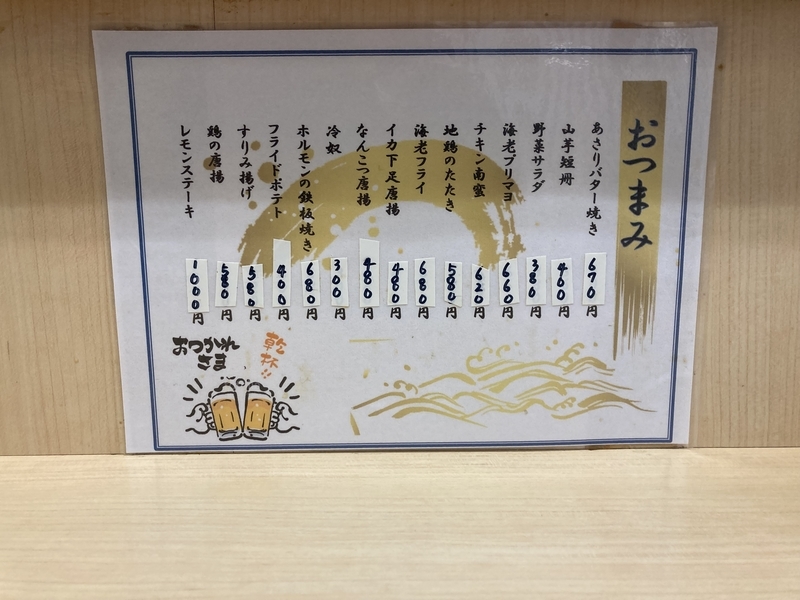 おつまみ
あさりバター焼き 670円
山芋短冊 460円
野菜サラダ 380円
海老プリマヨ 660円
チキン南蛮 620円
地鶏のたたき 580円
海老フライ 680円
イカ下足唐揚 480円
なんこつ唐揚 480円
冷奴 300円
ホルモンの鉄板焼き 680円
フライドポテト 400円
すりみ揚げ 580円
鶏の唐揚 580円
レモンステーキ 1000円
乾杯!!
おつかれ
さま